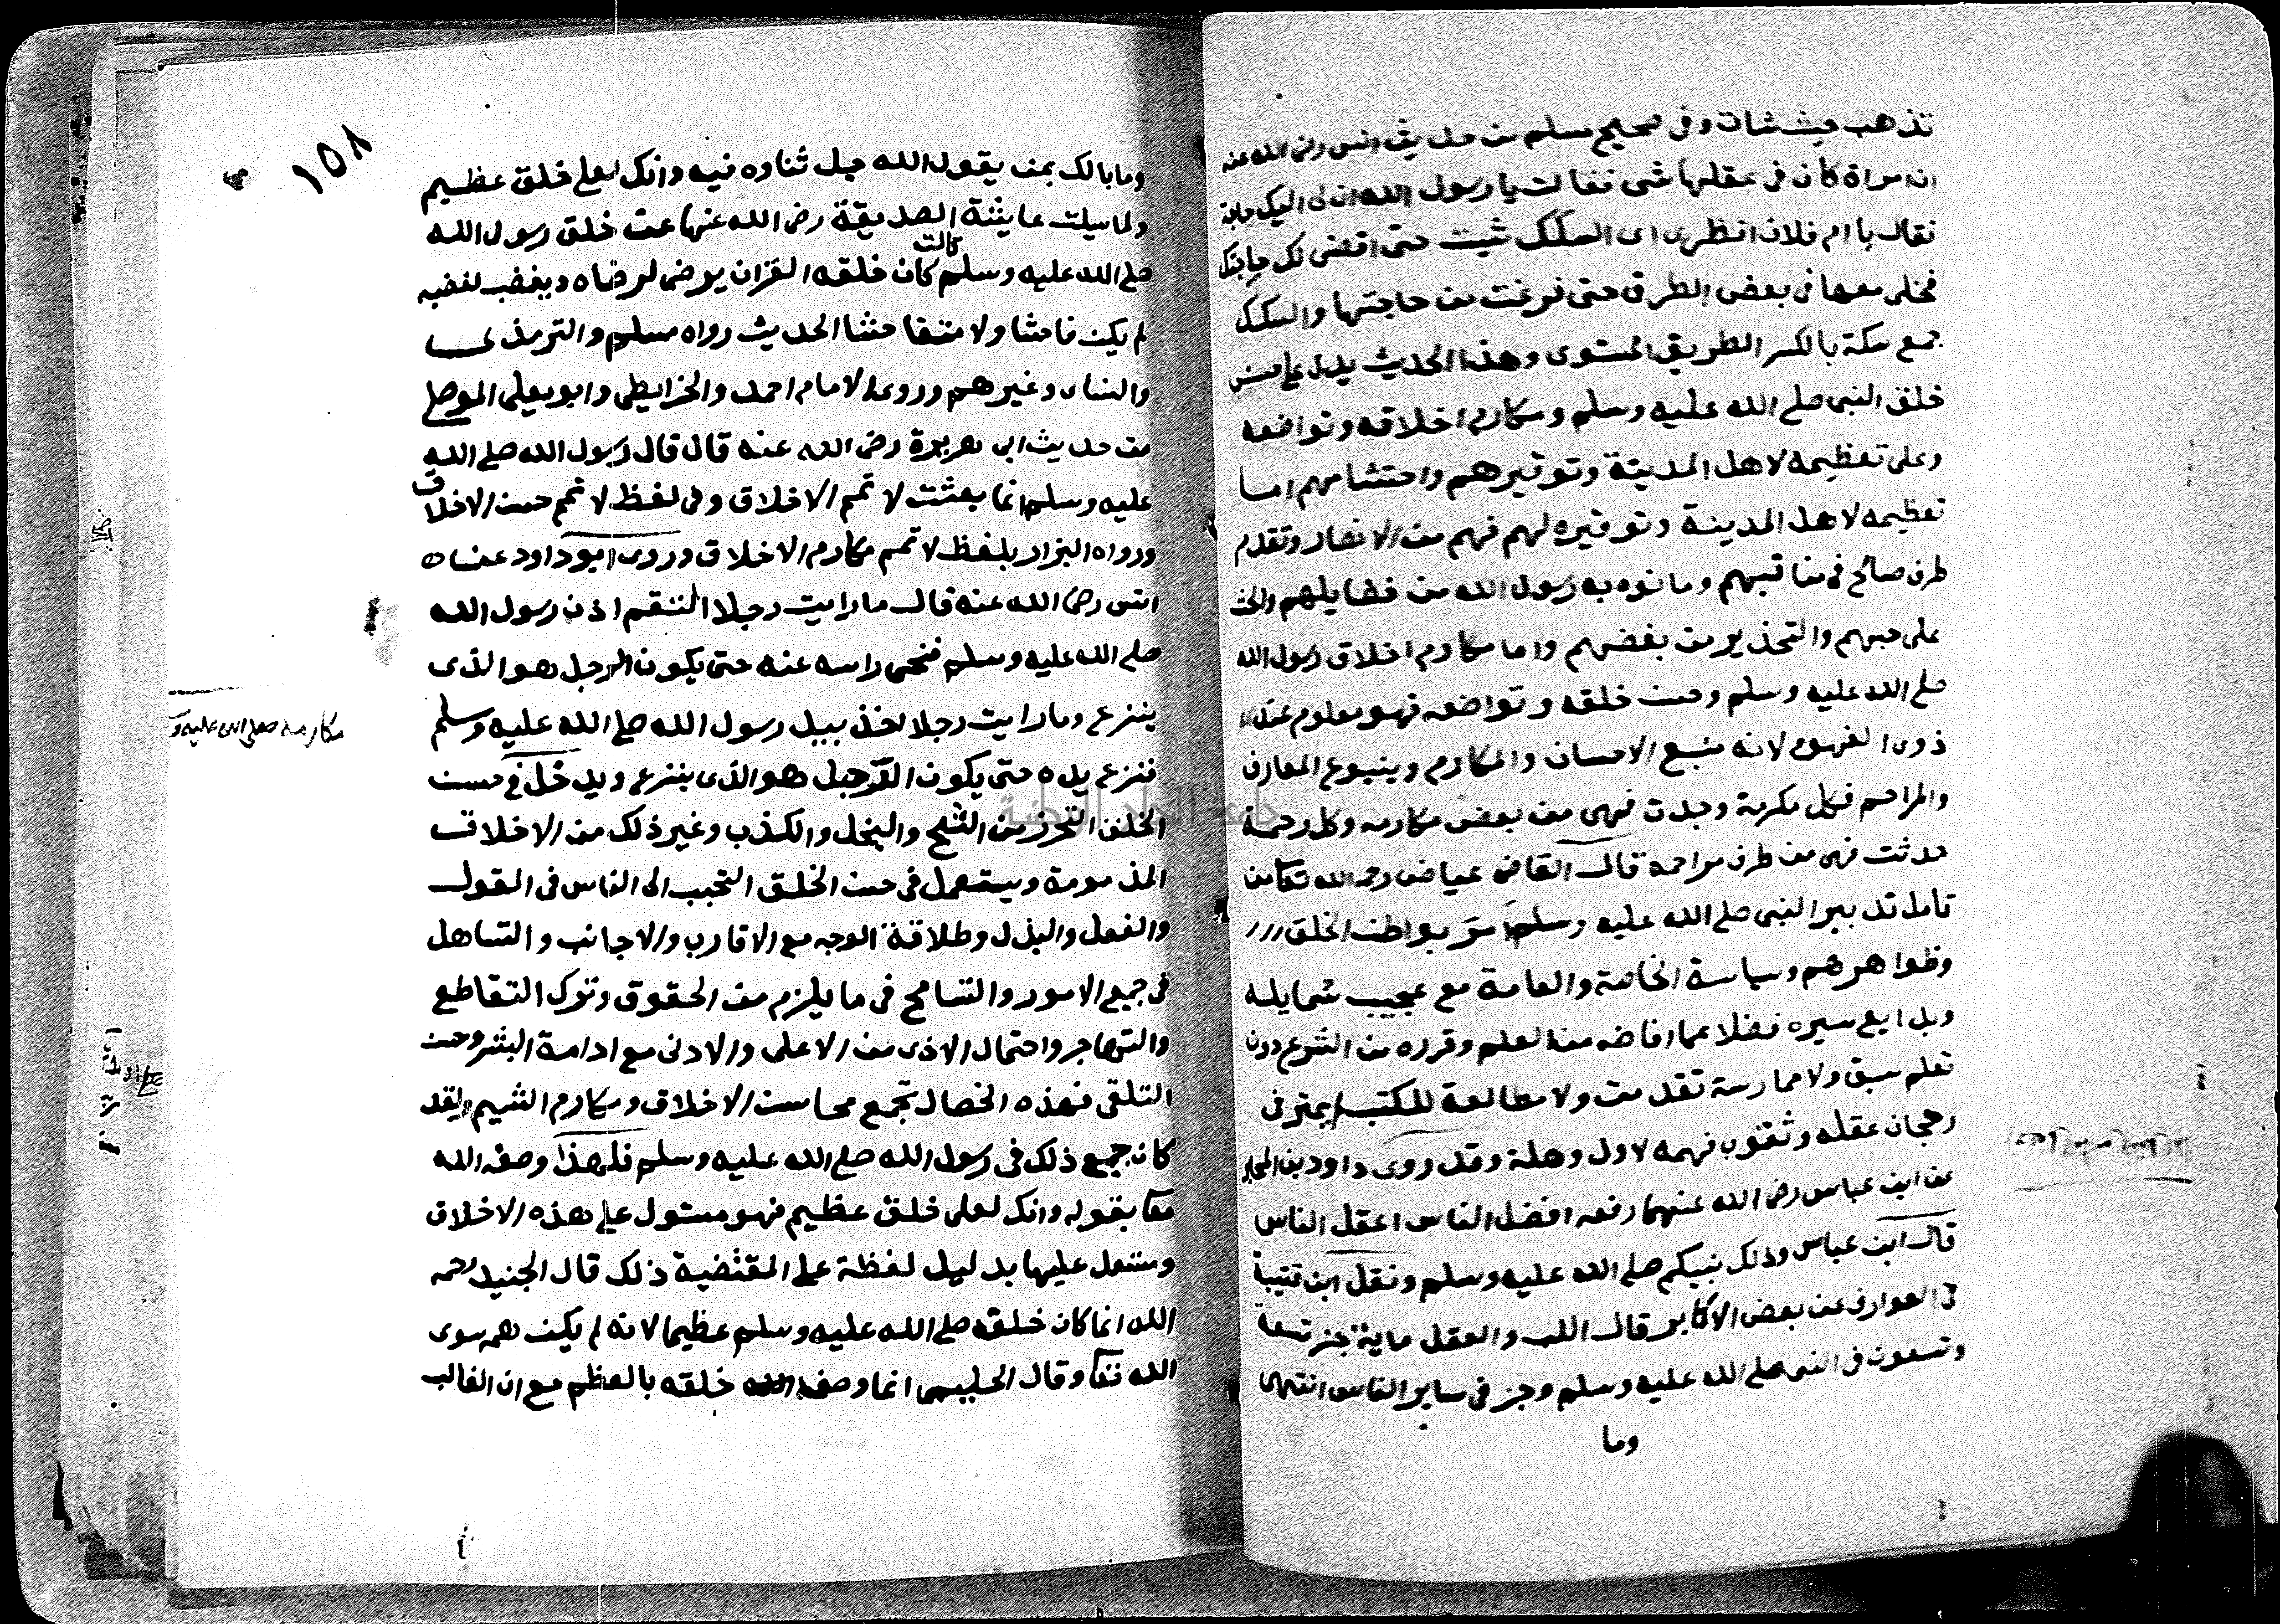 تذهب حيث شات وفى صحيح مسلم من حديث انس رضى الله عنه
ان مراة كان فى عقلها شى فقالت يا رسول الله ان لى اليك حاجة
فقال يا ام فلان انظرى اى السكك شيت حتى اقضى لك حاجتك
فخلى معها فى بعض الطرق حتى فرغت من حاجتها والسكك
جمع سكة بالكسر الطريق المستوى وهذا الحديث يدل على حسن
خلق النبى صلى الله عليه وسلم ومكارم اخلاقه وتواضعه
وعلى تعظيمه لاهل المدينة وتوقيرهم واحتشامهم اما
تعظيمه لاهل المدينة وتوقيره لهم فهم من الانصار وتقدم
طرف صالح فى مناقبهم وما نوه به رسول الله من فضايلهم والحث
على حبهم والتحذير من بغضهم واما مكارم اخلاق رسول الله
صلى الله عليه وسلم وحسن خلقه وتواضعه فهو معلوم عند
ذوى الفهوم لانه منبع الاحسان والمكارم وينبوع المعارف
والمراحم فكل مكرمة وجدت فهى من بعض مكارمه وكل رحمة
حدثت فهى من طرف مراحمه قال القاضى عياض رحمه الله تعا من
تامل تدبير النبى صلى الله عليه وسلم امر بواطن الخلق
وظواهرهم وسياسة الخاصة والعامة مع عجيب شمايله
وبدايع سيره فضلا عما افاضه من العلم وقرره من الشرع دون
تعلم سبق ولا ممارسة تقدمت ولا مطالعة للكتب لم يمتر فى
رحجان عقله وثقوب فهمه لاول وهلة وقد روى داود بن المحبر
عن ابن عباس رضى الله عنهما رفعه افضل الناس اعقل الناس
قال ابن عباس وذلك نبيكم صلى الله عليه وسلم ونقل ابن قتيبة
فى العوارف عن بعض الاكابر قال اللب والعقل ماية جز تسعة
وتسعون فى النبى صلى الله عليه وسلم وجز فى ساير الناس انتهى
وما
١٥٨
وما بالك بمن يقول الله جل ثناوه فيه وانك لعلى خلق عظيم
ولما سيلت عايشة الصديقة رضى الله عنها عن خلق رسول الله
صلى الله عليه وسلم قالت كان خلقه القران يرضى لرضاه ويغضب لغضبه
لم يكن فاحشا ولا متفاحشا الحديث رواه مسلم والترمذى
والنساى وغيرهم وروى الامام احمد والخرايطى وابو يعلى الموصلى
من حديث ابى هريرة رضى الله عنه قال قال رسول الله صلى الله
عليه وسلم انما بعثت لاتمم الاخلاق وفى لفظ لاتمم حسن الاخلاق
ورواه البزار بلفظ لاتمم مكارم الاخلاق وروى ابو داود عن
انس رضى الله عنه قال ما رايت رجلا التقم اذن رسول الله
صلى الله عليه وسلم فنحى راسه عنه حتى يكون الرجل هو الذى
ينزع وما رايت رجلا اخذ بيد رسول الله صلى الله عليه وسلم
فنزع يده حتى يكون الرجل هو الذى ينزع ويدخل فى حسن
الخلق التحرز من الشح والبخل والكذب وغير ذلك من الاخلاق
المذمومة ويستعمل فى حسن الخلق التحبب الى الناس فى القول
والفعل والبذل وطلاقة الوجه مع الاقارب والاجانب والتساهل
فى جميع الامور والتسامح فى ما يلزم من الحقوق وترك التقاطع
والتهاجر واحتمال الاذى من الاعلى والادنى مع ادامة البشر وحسن
التلقى فهذه الخصال تجمع محاسن الاخلاق ومكارم الشيم ولقد
كان جميع ذلك فى رسول الله صلى الله عليه وسلم فلهذا وصفه الله
تعا بقوله وانك لعلى خلق عظيم فهو مستول على هذه الاخلاق
ومشتمل عليها بدليل لفظة على المقتضية ذلك قال الجنيد رحمه
الله انما كان خلقه صلى الله عليه وسلم عظيما لانه لم يكن همه سوى
الله تعا وقال الحليمى انما وصف الله خلقه بالعظم مع ان الغالب
مكارمه صلى الله عليه و
جامعة النجاح الوطنية